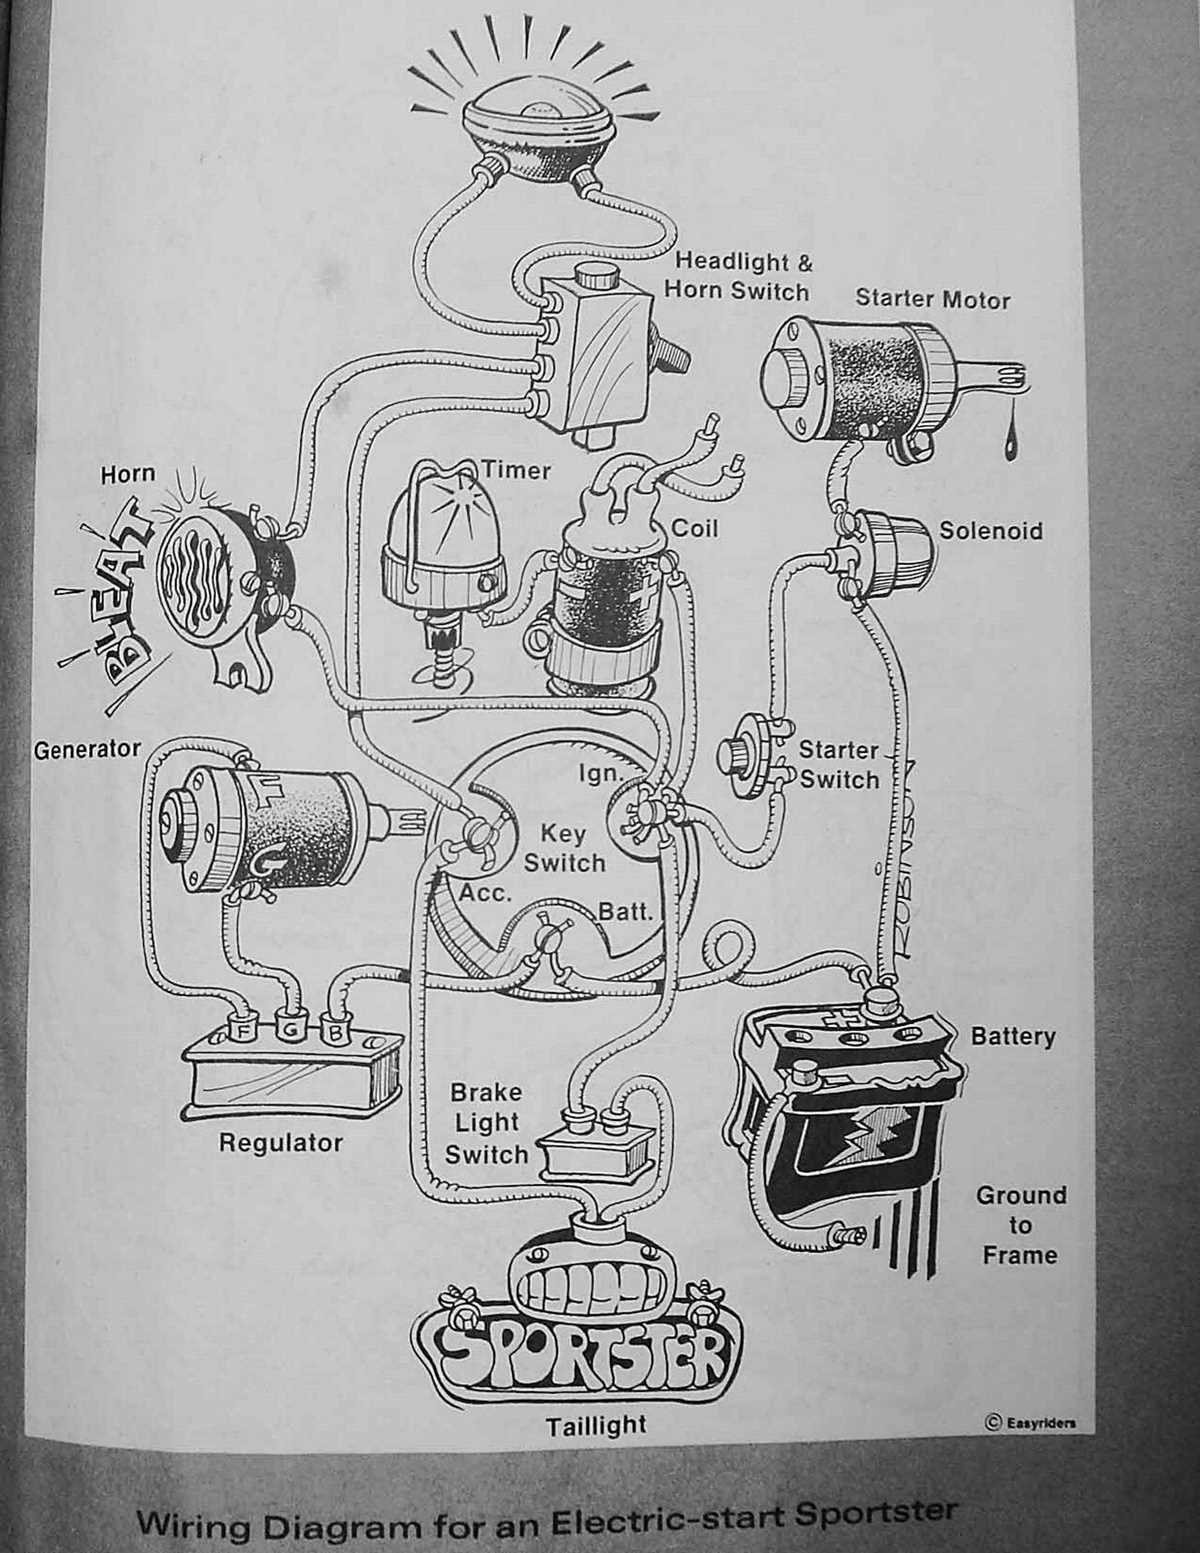 Headlight &
Horn Switch
Starter Motor
Horn
BLEAT
Timer
Coil
- +
Solenoid
Generator
F
G
Ign.
Key
Switch
Acc.
Batt.
Starter
Switch
ROBINSON
F G B
Regulator
+
-
Battery
Brake
Light
Switch
Ground
to
Frame
SPORTSTER
Taillight
© Easyriders
Wiring Diagram for an Electric-start Sportster